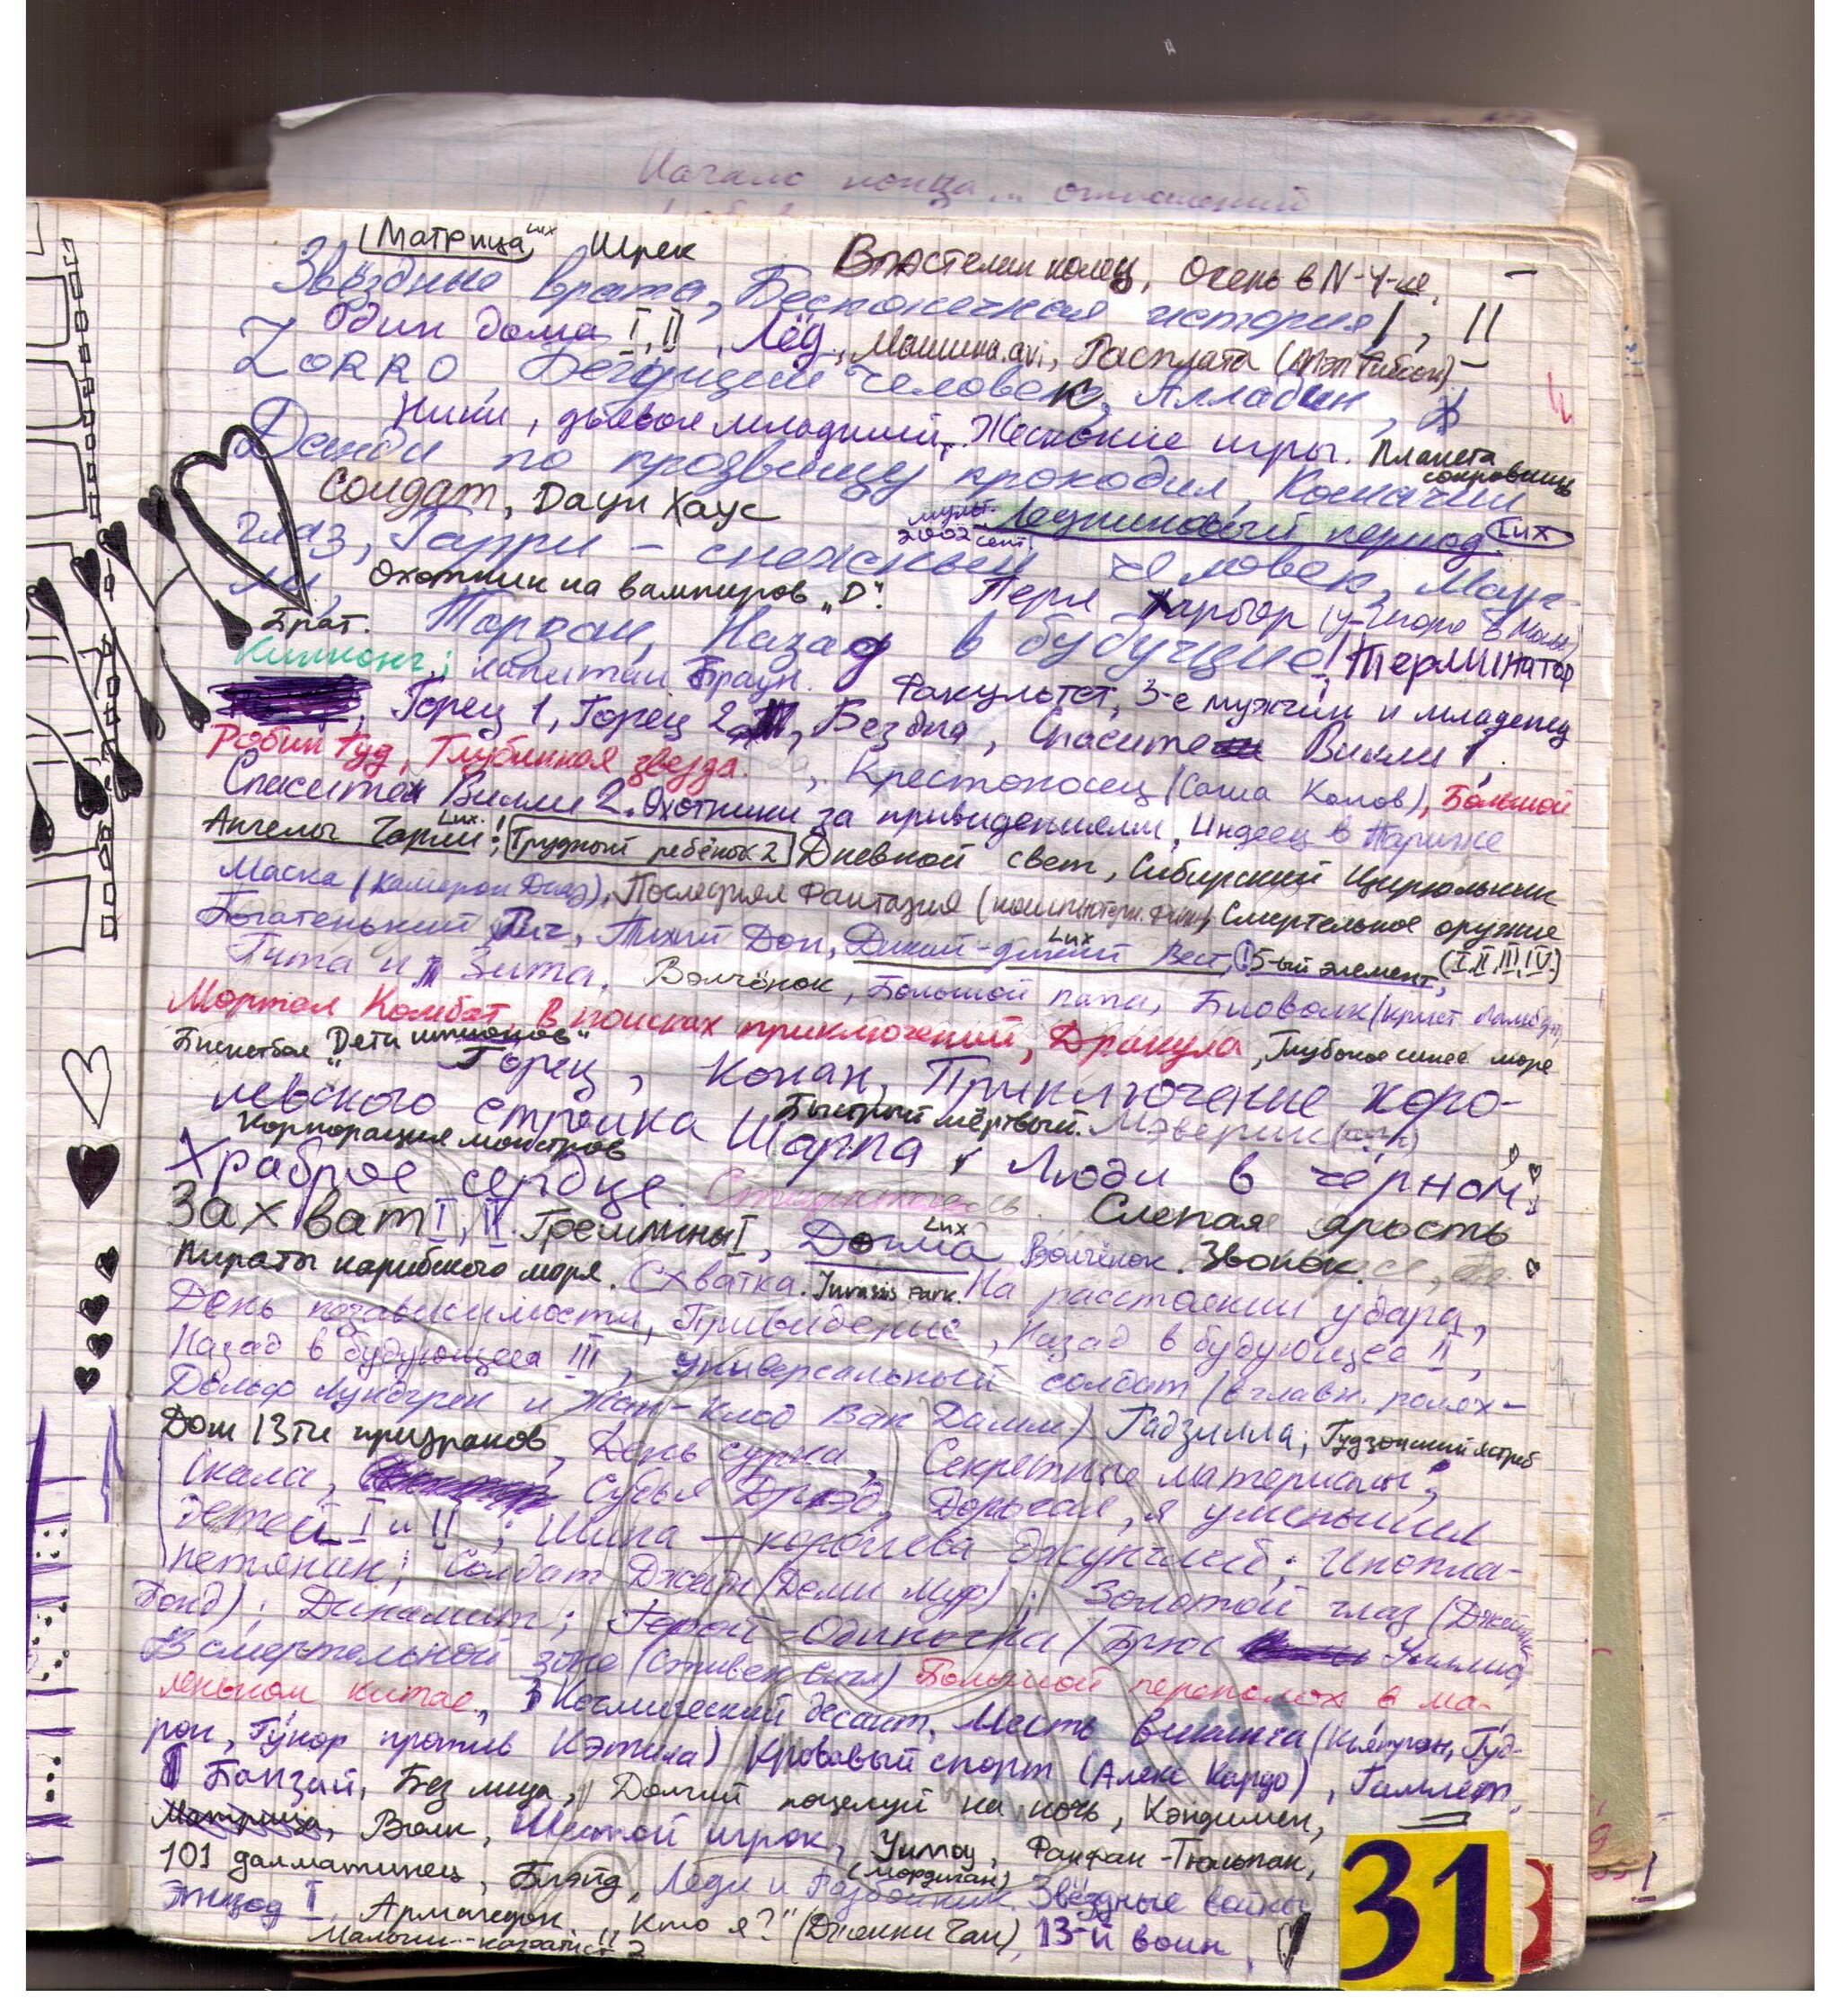 Начало конца... отношений
Матрица Lux, Шрек Властелин колец, Осень в N-Y-ке,
Звёздные врата, Бесконечная история I, II
Один дома I, II, Лёд, Машина.avi, Расплата (Мэл Гибсон).
ZORRO, Бегущий человек, Алладин,
Ники, дьявол младший. Жестокие игры. Планета сокровищ
Денди по прозвищу крокодил, Кошачий
Солдат, Даун Хаус мульт. 2002 сент. Ледниковый период Lux
глаз, Гарри – снежный человек, Мауг-
ли,
Охотник на вампиров „D“. Перл Харбор
Брат. Тарзан, Назад в будучщие! Терминатор
Кингконг; капитан Браун. Факультет, 3-е мужчин и младенец
Горец 1, Горец 2, Бездна, Спасите Вилли 1,
Робин Гуд, Глубинная звезда. Крестоносец (Саша Камов), Большой
Спасите Вилли 2. Охотники за привидениями, Индеец в Париже
Ангелы Чарли Lux.! Трудный ребёнок 2 Дневной свет, Сибирский Цирюльник
Маска (Камерон Диаз), Последняя Фантазия (компьютерн. фильм), Смертельное оружие
Богатенький Рич, Тихий Дон, Дикий-дикий Вест Lux, 5-ый элемент, (I, II, III, IV.)
Гита и Зита, Волчёнок, Большой папа, Бловолк
Мортал Комбат, В поисках приключений, Дракула, Глубокое синее море
„Дети шпионов“
Горец, Конан, Приключение коро-
левского стрелка Шарпа, Быстрый мёртвый. Мэверик
Корпорация монстров Люди в чёрном!
Храброе сердце.
Захват I, II. Гремлины I, Догма Lux Слепая ярость
Волчёнок. Звонок.
Пираты карибского моря. Схватка. Jurassis Park. На расстоянии удара,
День независимости, Привидение, Назад в будующее II,
Назад в будующее III, Универсальный солдат (в главн. ролях –
Дольф Лундгрен и Жан-Клод Ван Дамм) Гадзилла; Гудзонский ястреб
Дом 13ти призраков, День сурка, Секретные материалы;
Скала, Судья Дрэд, Дорогая, я уменьшил
детей I и II; Шина – королева джунглей; Инопла-
нетянин; Солдат Джейн (Деми Мур); Золотой глаз (Джеймс
Бонд); Динамит; Герой-Одиночка (Брюс Уиллис)
В смертельной зоне (Стивен Сигл) Большой переполох в ма-
леньком китае, Космический десант, Месть
рон, Гунор против Кэтила) Кровавый спорт (Алекс Кардо), Гамлет,
Банзай, Без лица, Долгий поцелуй на ночь, Кэндимен,
Матрица, Волк, Шестой игрок, Уилоу (мордиган), Фанфан-Тюльпан,
101 далматинец, Блэйд, Леди и Разбойник. Звёздные войны
Эпизод I, Армагедон. „Кто я?“ (Джекки Чан), 13-й воин.
Малыш-каратист 2
31